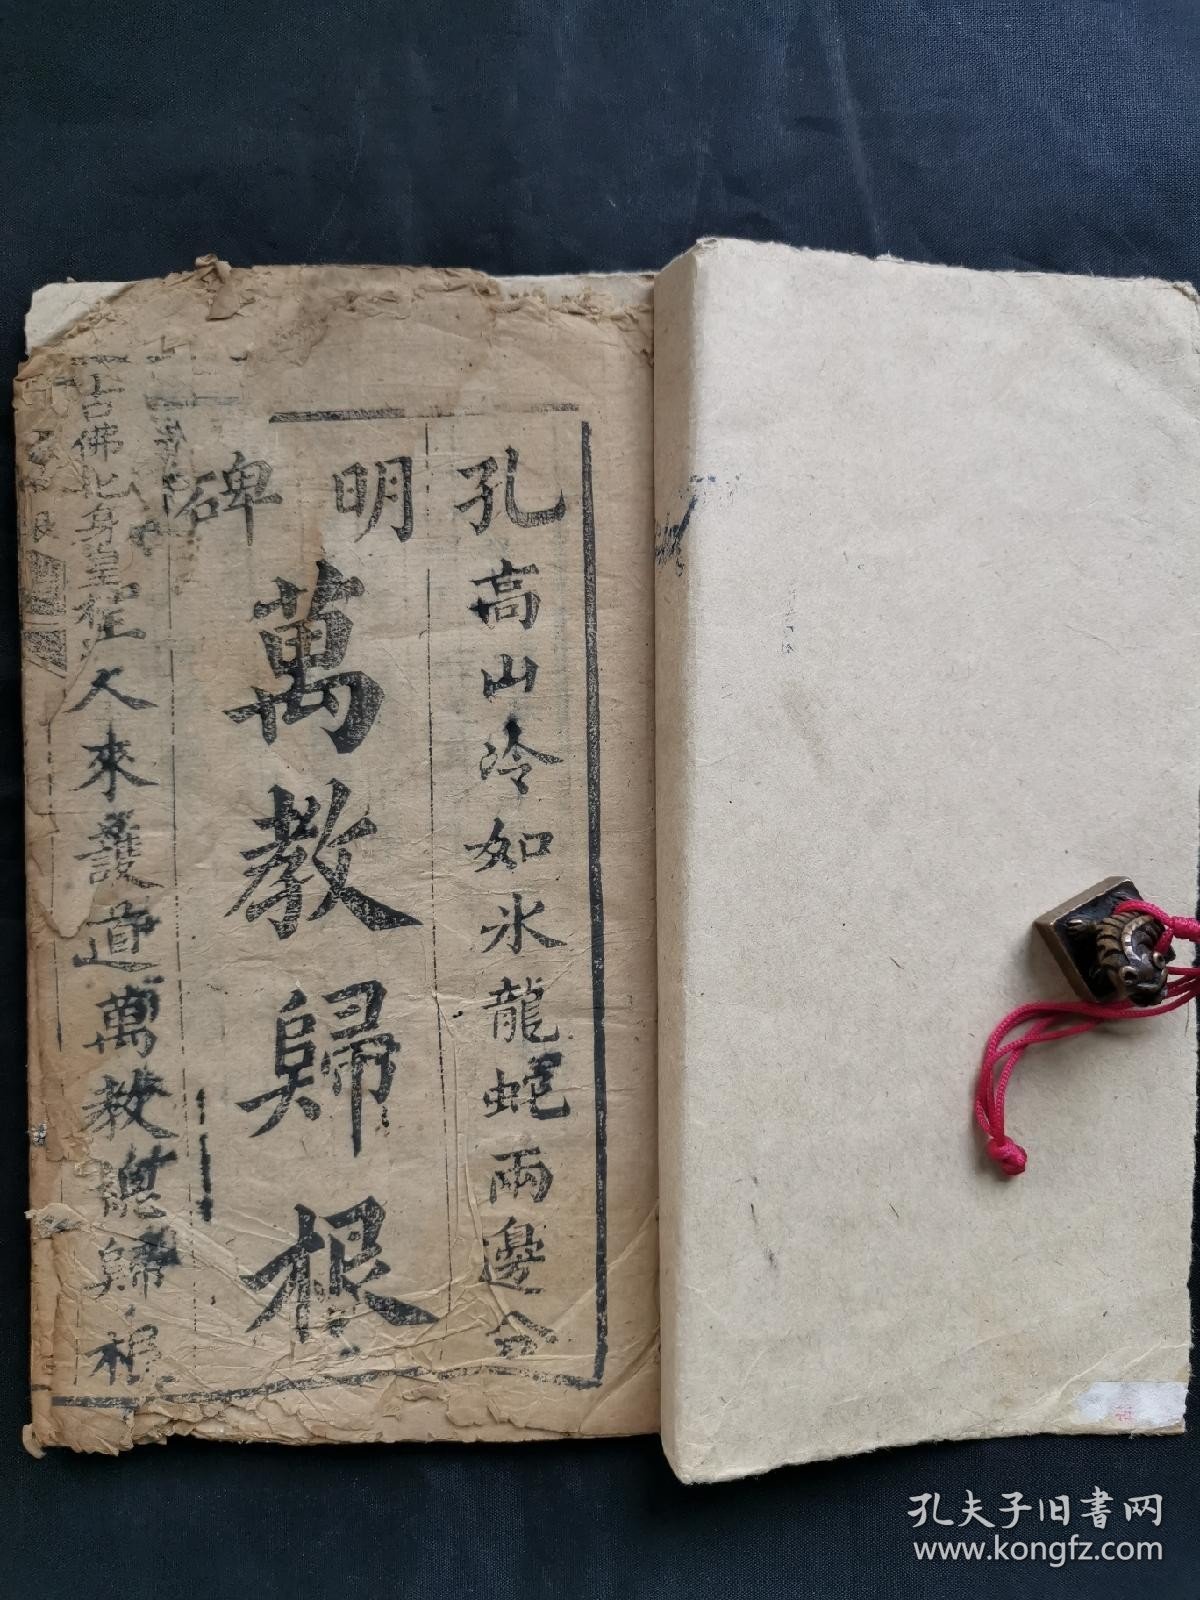 孔高山冷如氷龍蛇兩邊分
明碑
萬教歸根
古佛化身皇
人來護道萬教總歸根
孔夫子旧书网
www.kongfz.com